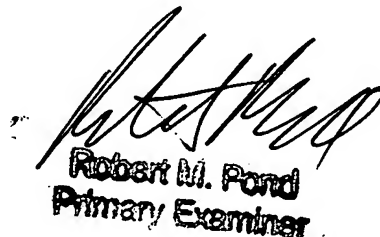 Robert M. Pond
Primary Examiner